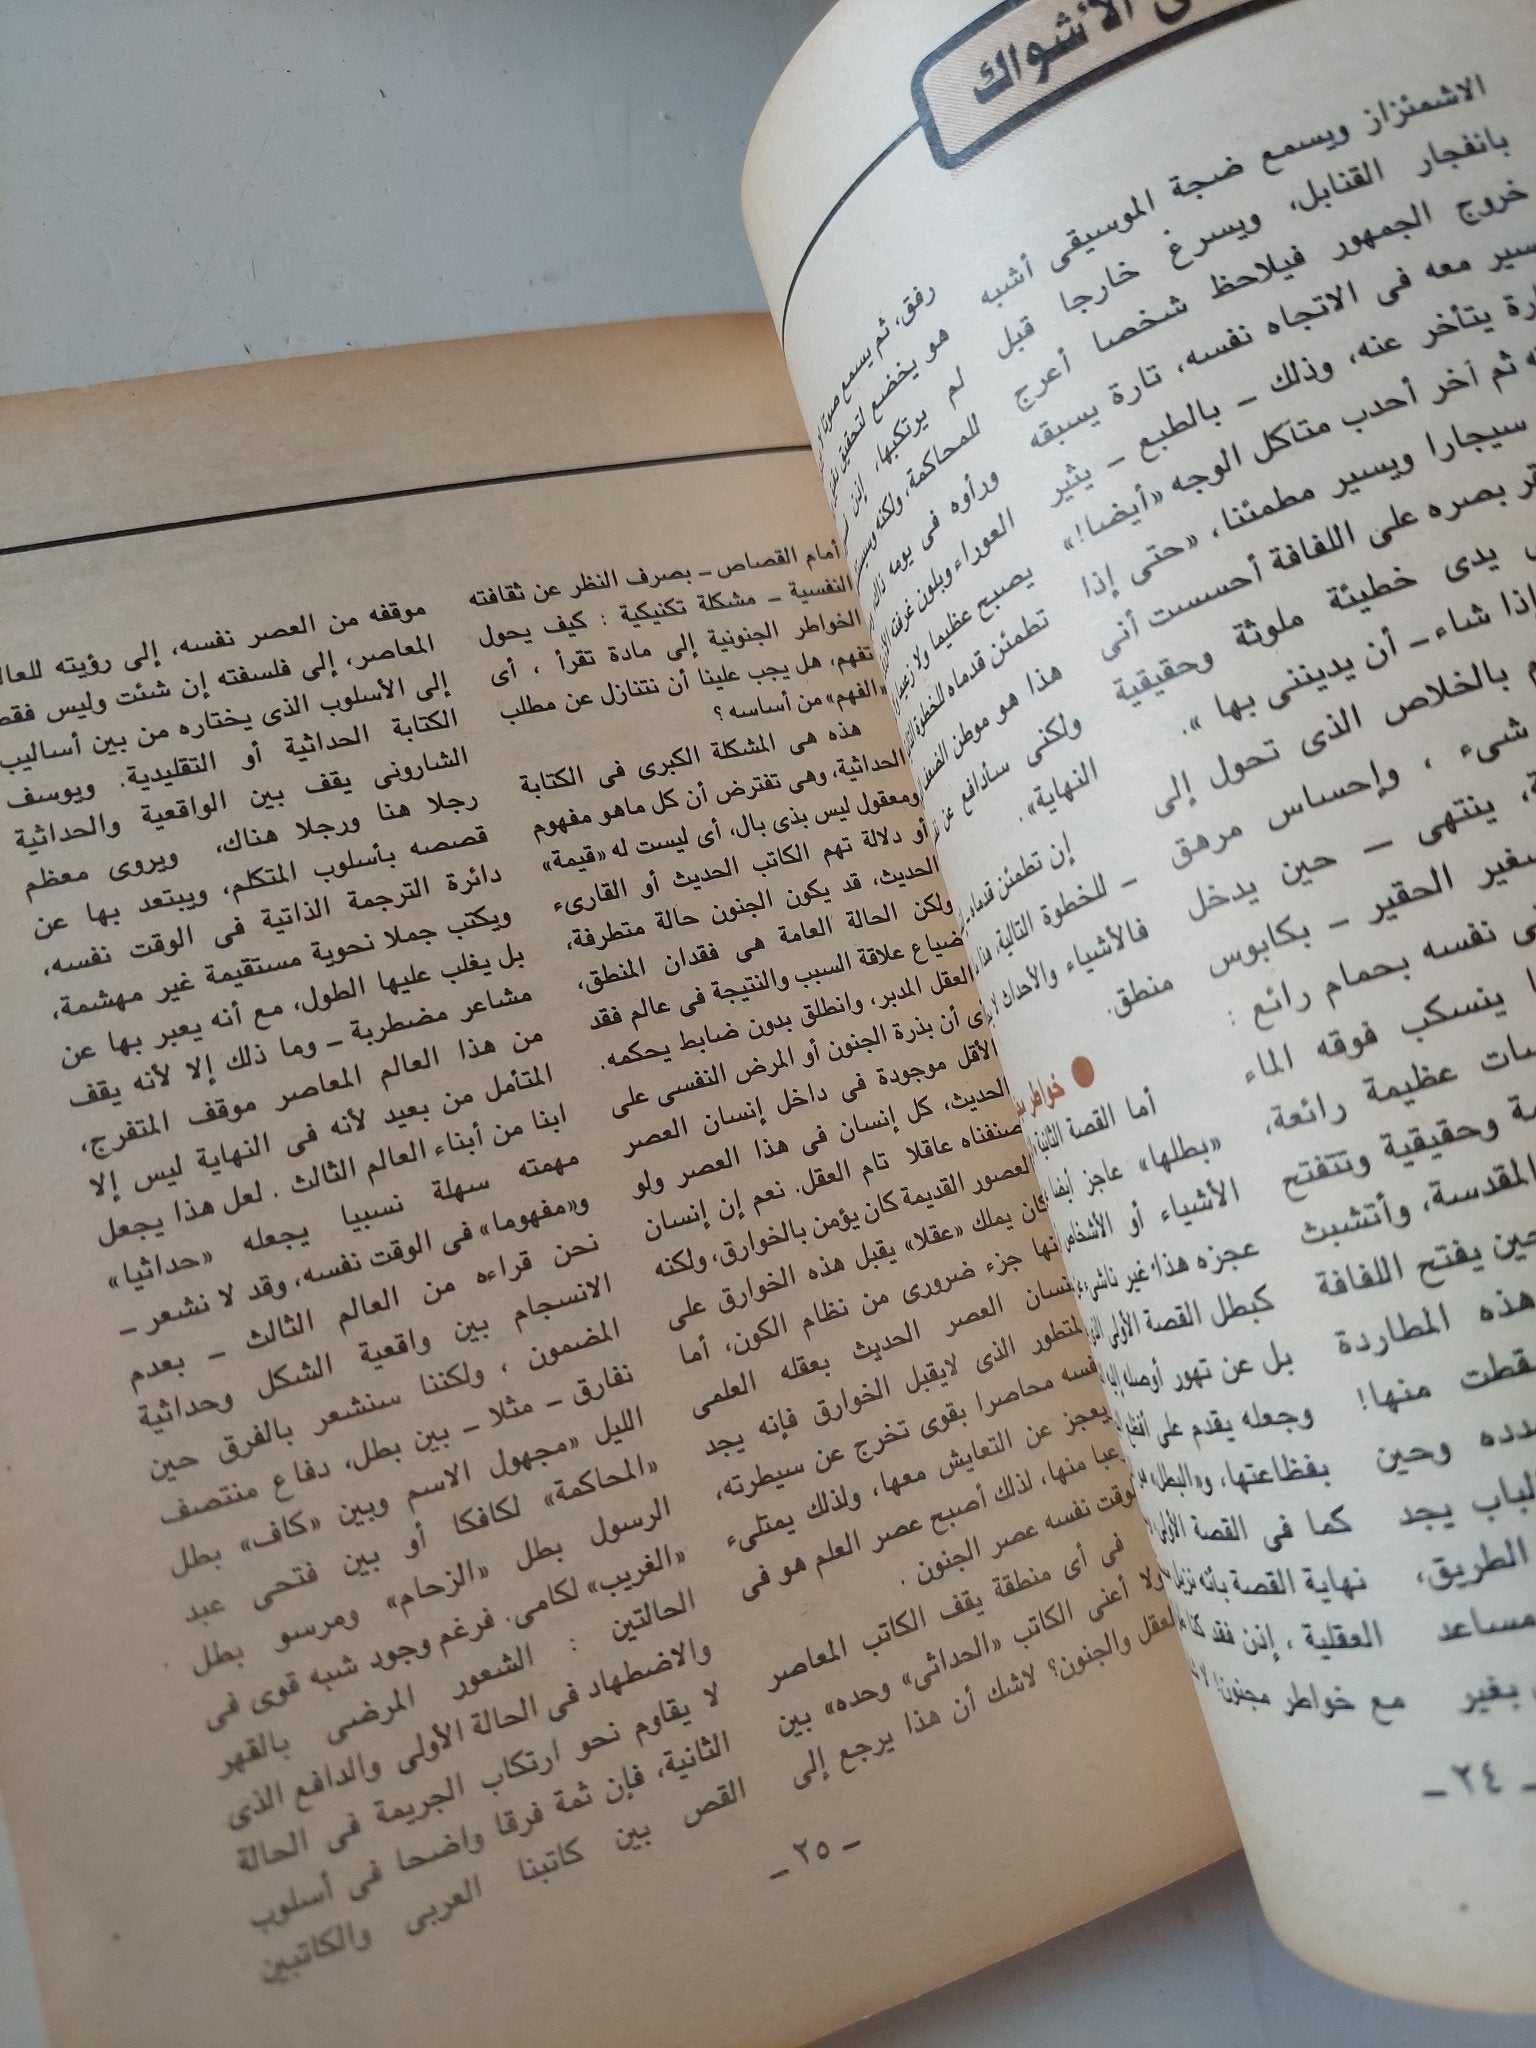 الأشواك
الاشمئزاز ويسمع ضجة الموسيقى أشبه
بانفجار القنابل، ويسرع خارجا قبل
خروج الجمهور فيلاحظ شخصا أعرج
يسير معه فى الاتجاه نفسه، تارة يسبقه
يتأخر عنه، وذلك ـ بالطبع ـ يثير
ثم آخر أحدب متآكل الوجه «أيضا!»
سيجارا ويسير مطمئنا، «حتى إذا
بصره على اللفافة أحسست أنى
يدى خطيئة ملوثة وحقيقية
شاء ـ أن يديننى بها ».
بالخلاص الذى تحول إلى
شىء ، وإحساس مرهق
ينتهى ـ حين يدخل
الحقير ـ بكابوس
نفسه بحمام رائع :
ينسكب فوقه الماء
عظيمة رائعة،
وحقيقية وتتفتح
المقدسة، وأتشبث
حين يفتح اللفافة
هذه المطاردة
منها!
وحين
الباب يجد
الطريق،
بغير
رفق، ثم يسمع صوتا
هو يخضع لتحقيق
لم يرتكبها، إذن
للمحاكمة، ولكنه
ورأوه فى يومه ذاك،
العوراء وبلون غرفته
يصبح عظيما ولا
تطمئن قدماه للخطوة
هذا هو موطن الضعف
ولكنى سأدافع عن
النهاية».
إن تطمئن قدماه
ـ للخطوة التالية،
فالأشياء والأحداث لا
منطق.
● خواطر
أما القصة الثانية،
«بطلها» عاجز أيضا
الأشياء أو الأشخاص
عجزه هذا غير ناشىء
كبطل القصة الأولى
بل عن تهور أوصله إلى
وجعله يقدم على
بفظاعتها، و«البطل»
كما فى القصة الأولى
نهاية القصة بأنه
العقلية ، إذن فقد كنا
مع خواطر مجنون!
ـ ٢٤ ـ
أمام القصاص ـ بصرف النظر عن ثقافته
النفسية ـ مشكلة تكنيكية : كيف يحول
الخواطر الجنونية إلى مادة تقرأ ، أى
تفهم، هل يجب علينا أن نتنازل عن مطلب
«الفهم» من أساسه ؟
هذه هى المشكلة الكبرى فى الكتابة
الحداثية، وهى تفترض أن كل ماهو مفهوم
ومعقول ليس بذى بال، أى ليست له «قيمة»
أو دلالة تهم الكاتب الحديث أو القارىء
الحديث، قد يكون الجنون حالة متطرفة،
ولكن الحالة العامة هى فقدان المنطق،
ضياع علاقة السبب والنتيجة فى عالم فقد
العقل المدبر، وانطلق بدون ضابط يحكمه.
أى أن بذرة الجنون أو المرض النفسى على
الأقل موجودة فى داخل إنسان العصر
الحديث، كل إنسان فى هذا العصر ولو
صنفناه عاقلا تام العقل. نعم إن إنسان
العصور القديمة كان يؤمن بالخوارق، ولكنه
كان يملك «عقلا» يقبل هذه الخوارق على
أنها جزء ضرورى من نظام الكون، أما
إنسان العصر الحديث بعقله العلمى
المتطور الذى لايقبل الخوارق فإنه يجد
نفسه محاصرا بقوى تخرج عن سيطرته،
يعجز عن التعايش معها، ولذلك يمتلىء
رعبا منها، لذلك أصبح عصر العلم هو فى
الوقت نفسه عصر الجنون .
فى أى منطقة يقف الكاتب المعاصر
ولا أعنى الكاتب «الحداثى» وحده» بين
العقل والجنون؟ لاشك أن هذا يرجع إلى
موقفه من العصر نفسه، إلى رؤيته للعالم
المعاصر، إلى فلسفته إن شئت وليس فقط
إلى الأسلوب الذى يختاره من بين أساليب
الكتابة الحداثية أو التقليدية. ويوسف
الشارونى يقف بين الواقعية والحداثية
رجلا هنا ورجلا هناك، ويروى معظم
قصصه بأسلوب المتكلم، ويبتعد بها عن
دائرة الترجمة الذاتية فى الوقت نفسه،
ويكتب جملا نحوية مستقيمة غير مهشمة،
بل يغلب عليها الطول، مع أنه يعبر بها عن
مشاعر مضطربة ـ وما ذلك إلا لأنه يقف
من هذا العالم المعاصر موقف المتفرج،
المتأمل من بعيد لأنه فى النهاية ليس إلا
ابنا من أبناء العالم الثالث . لعل هذا يجعل
مهمته سهلة نسبيا يجعله «حداثيا»
و«مفهوما» فى الوقت نفسه، وقد لا نشعر ـ
نحن قراءه من العالم الثالث ـ بعدم
الانسجام بين واقعية الشكل وحداثية
المضمون ، ولكننا سنشعر بالفرق حين
نفارق ـ مثلا ـ بين بطل، دفاع منتصف
الليل «مجهول الاسم وبين «كاف» بطل
«المحاكمة» لكافكا أو بين فتحى عبد
الرسول بطل «الزحام» ومرسو بطل
«الغريب» لكامى. فرغم وجود شبه قوى فى
الحالتين : الشعور المرضى بالقهر
والاضطهاد فى الحالة الأولى والدافع الذى
لا يقاوم نحو ارتكاب الجريمة فى الحالة
الثانية، فإن ثمة فرقا واضحا فى أسلوب
القص بين كاتبنا العربى والكاتبين
ـ ٢٥ ـ